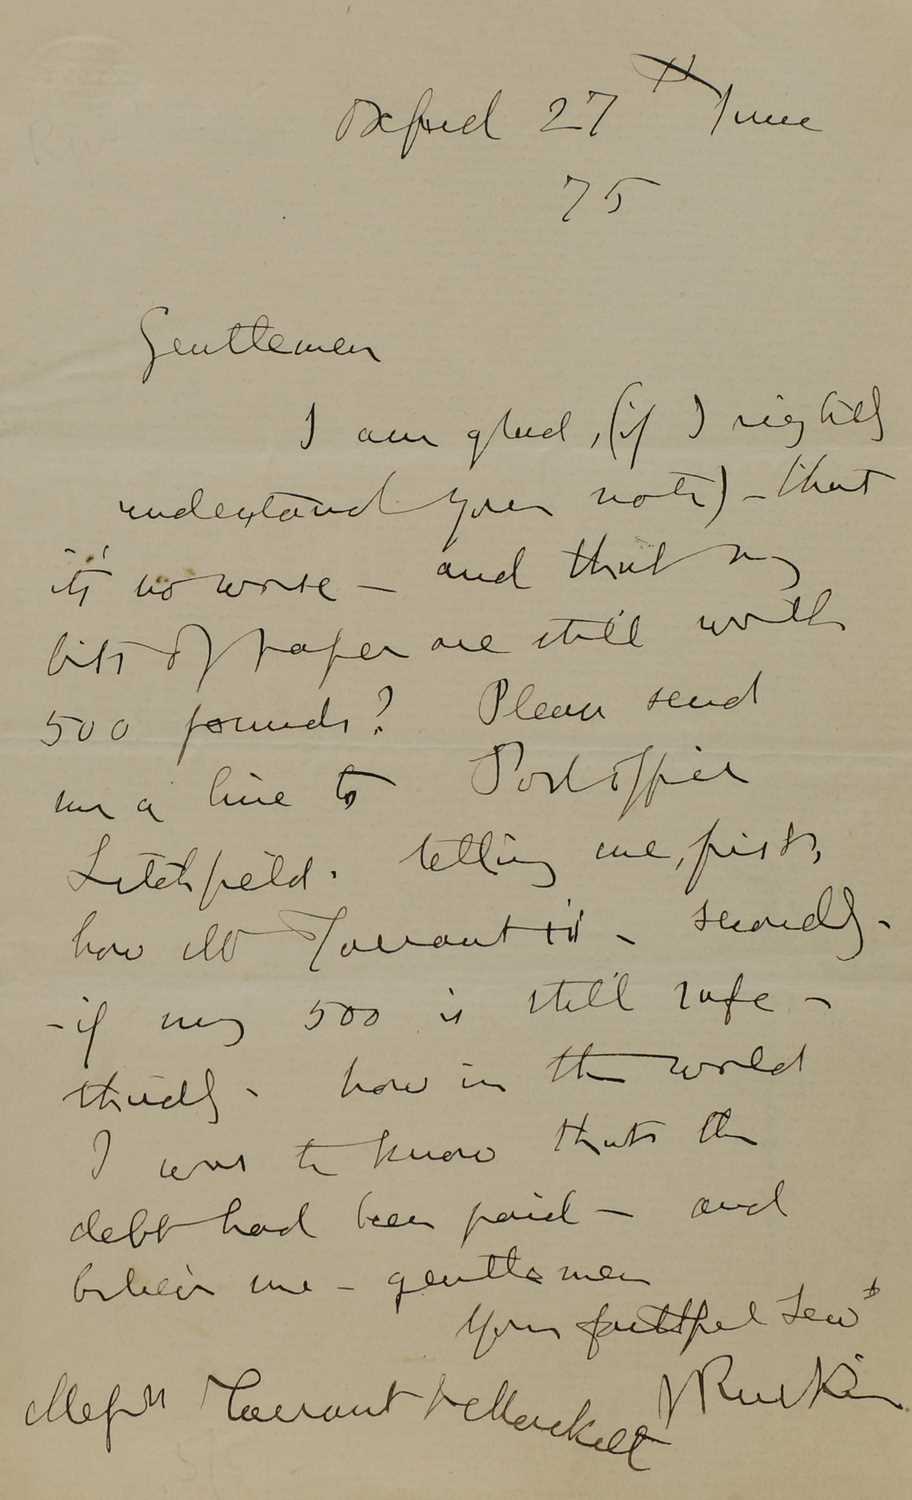 Oxford 27th June
75
Gentlemen
I am glad, (if I rightly
understand your note) - that
it's no worse - and that my
bits of paper are still worth
500 pounds? Please send
me a line to Post office
Litchfield. telling me, first,
how ill Tarrant is - secondly -
- if my 500 is still safe -
thirdly - how in the world
I was to know that the
debt had been paid - and
believe me - gentlemen
Your faithful Servt
J Ruskin
Messrs Tarrant & Mackrell